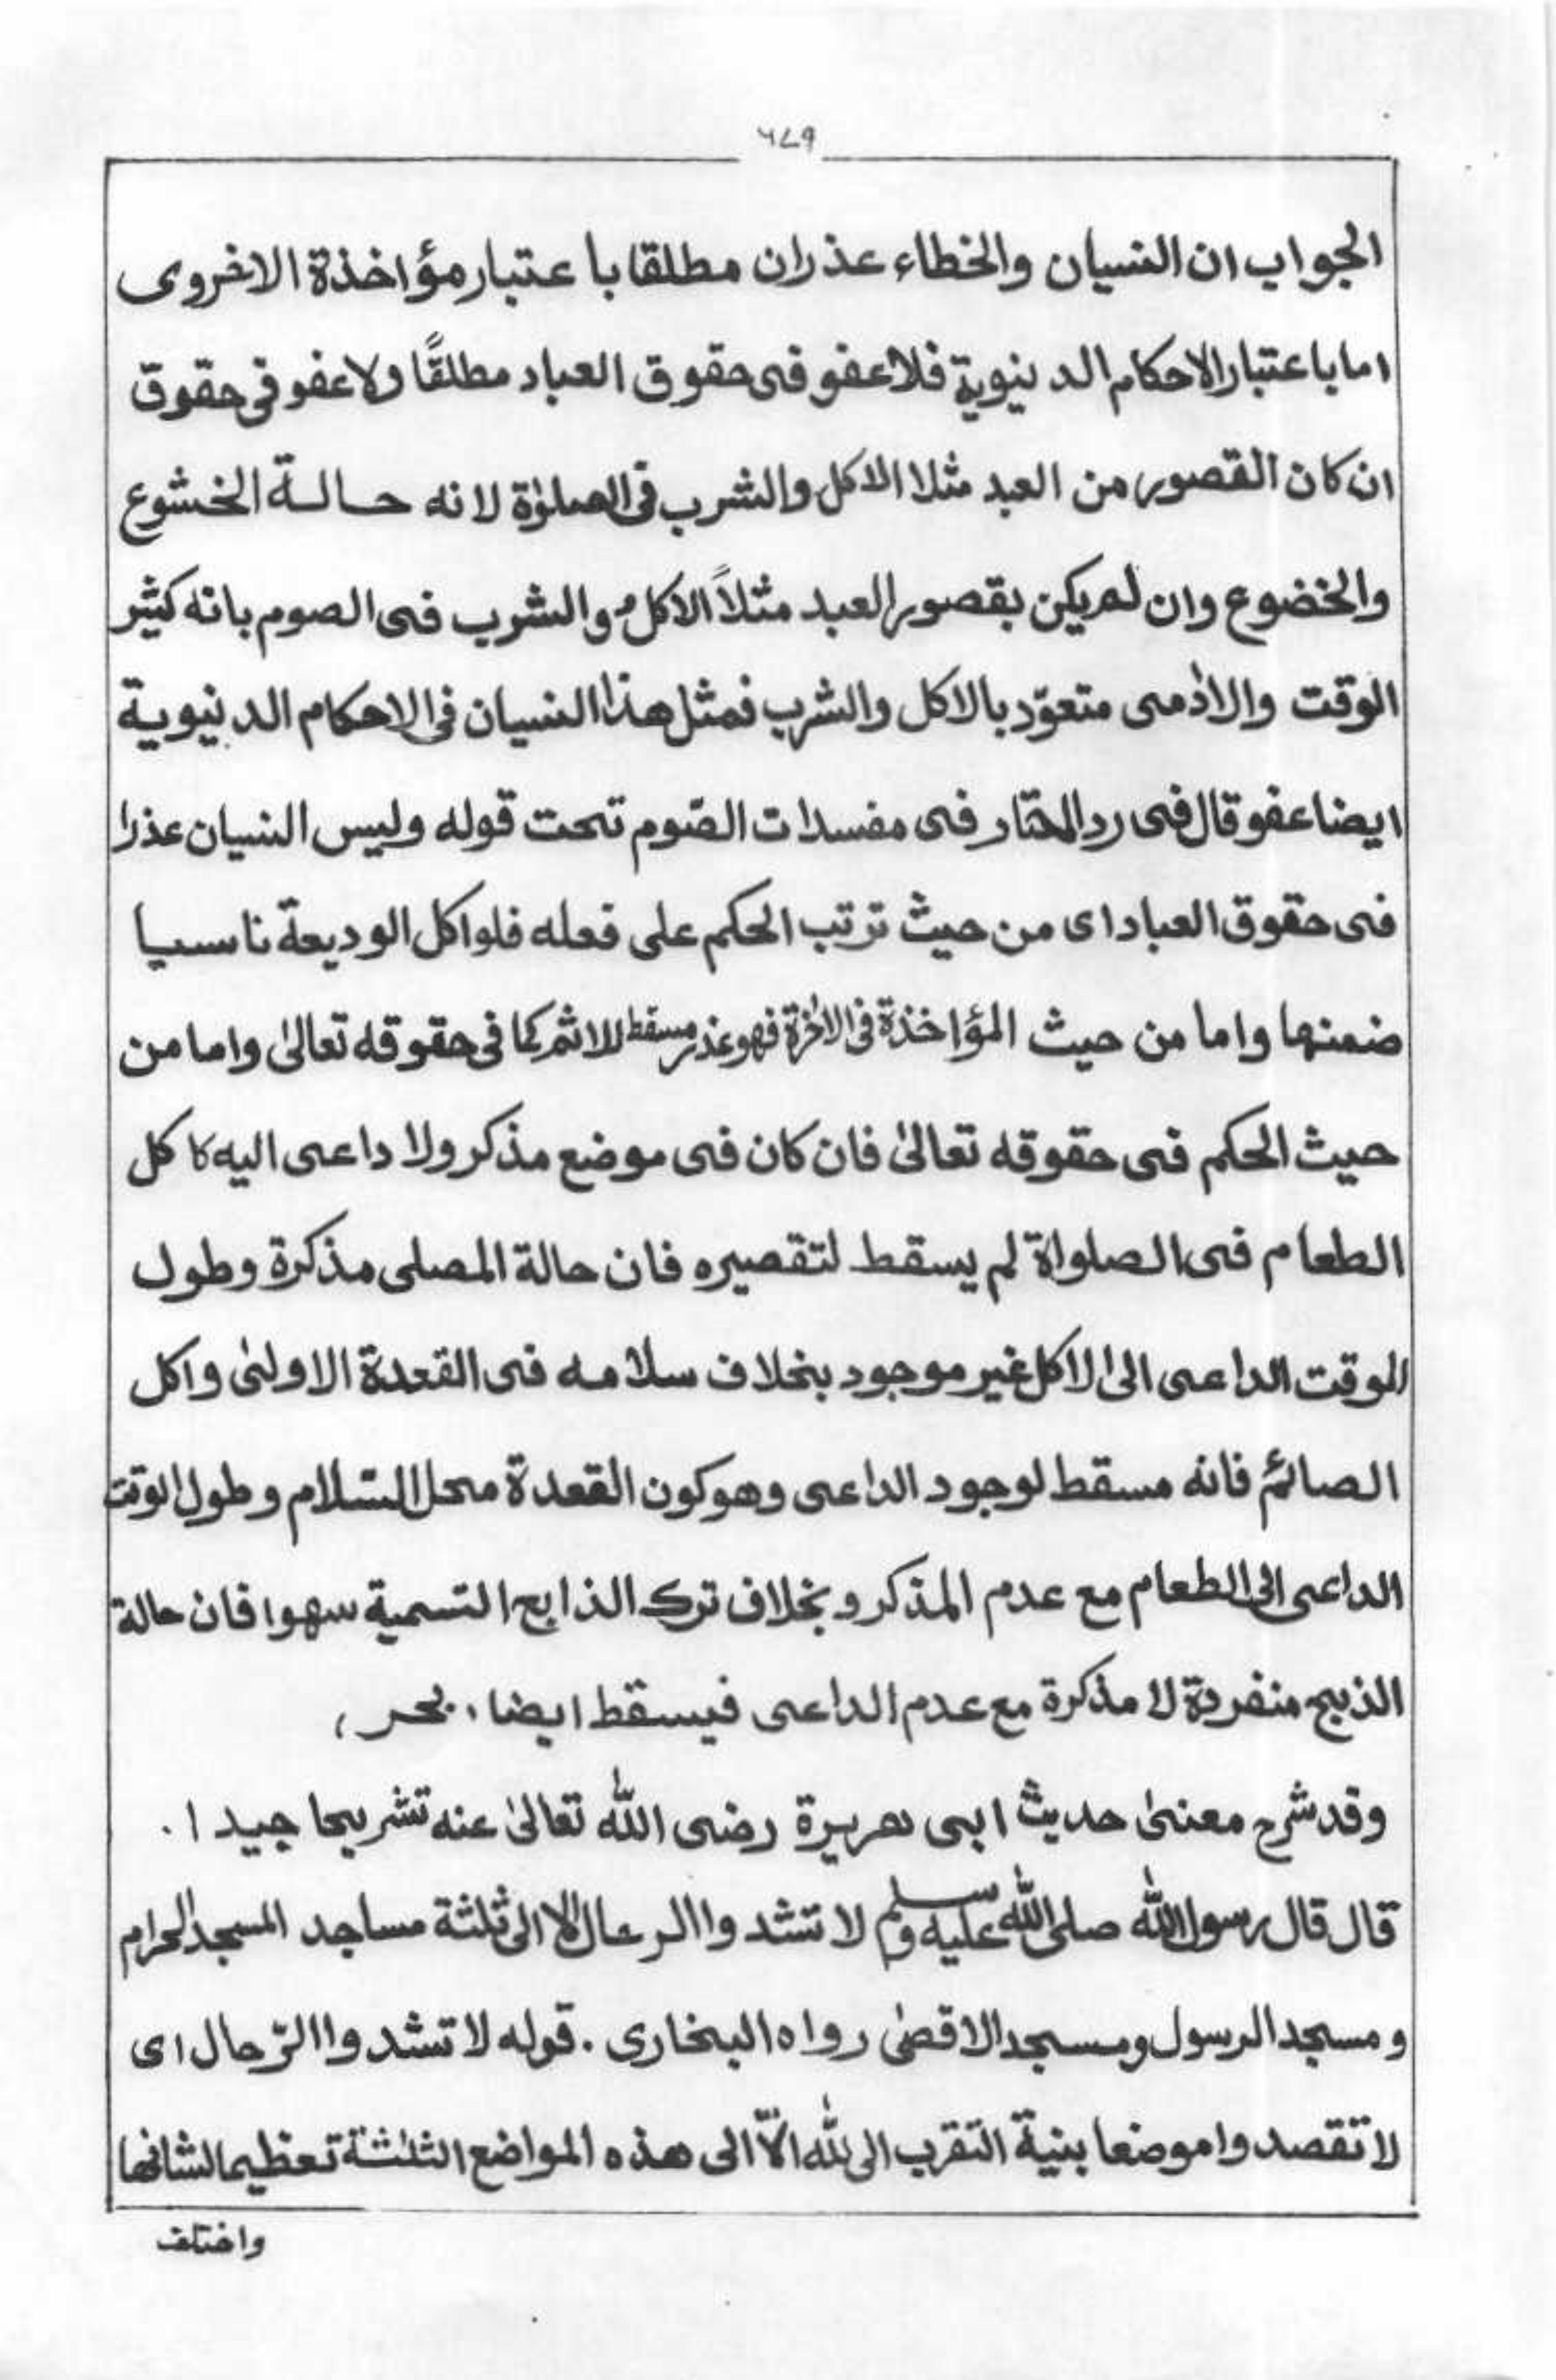 ٦٧٩
الجواب ان النسيان والخطاء عذران مطلقا با عتبار مؤاخذة الاخروى
اما باعتبار الاحكام الدينوية فلا عفو فى حقوق العباد مطلقًا ولا عفو فى حقوق
ان كان القصور من العبد مثلا الاكل والشرب فى الصلوٰة لانه حالة الخشوع
والخضوع وان لم يكن بقصور العبد مثلاً الاكل والشرب فى الصوم بانه كثير
الوقت والاٰدمى متعوّد بالاكل والشرب فمثل هذا النسيان فى الاحكام الدينوية
ايضا عفو قال فى رد المحتار فى مفسدات الصّوم تحت قوله وليس النسيان عذرا
فى حقوق العباد اى من حيث ترتب الحكم على فعله فلو اكل الوديعة ناسيا
ضمنها واما من حيث المؤاخذة فى الاٰخرة فهو عذر مسقط للاثم كما فى حقوقه تعالىٰ واما من
حيث الحكم فى حقوقه تعالىٰ فان كان فى موضع مذكر ولا داعى اليه كا كل
الطعام فى الصلواة لم يسقط لتقصيره فان حالة المصلى مذكرة وطول
الوقت الداعى الى الاكل غير موجود بخلاف سلامه فى القعدة الاولىٰ واكل
الصائم فانه مسقط لوجود الداعى وهو كون القعدة محل السّلام وطول الوقت
الداعى الى الطعام مع عدم المذكر وبخلاف ترك الذابح التسمية سهوا فان حالة
الذبح منفردة لا مذكرة مع عدم الداعى فيسقط ايضا، بحر،
وقد شرح معنىٰ حديث ابى هريرة رضى الله تعالىٰ عنه تشريحا جيدا.
قال قال رسول الله صلى الله عليه وسلم لا تشدوا الرحال الا الى ثلثة مساجد المسجد الحرام
ومسجد الرسول ومسجد الاقصٰى رواه البخارى. قوله لا تشدوا الرّحال اى
لا تقصدوا موضعا بنية التقرب الى الله الّا الى هذه المواضع الثلٰثة تعظيما لشانها
واختلف